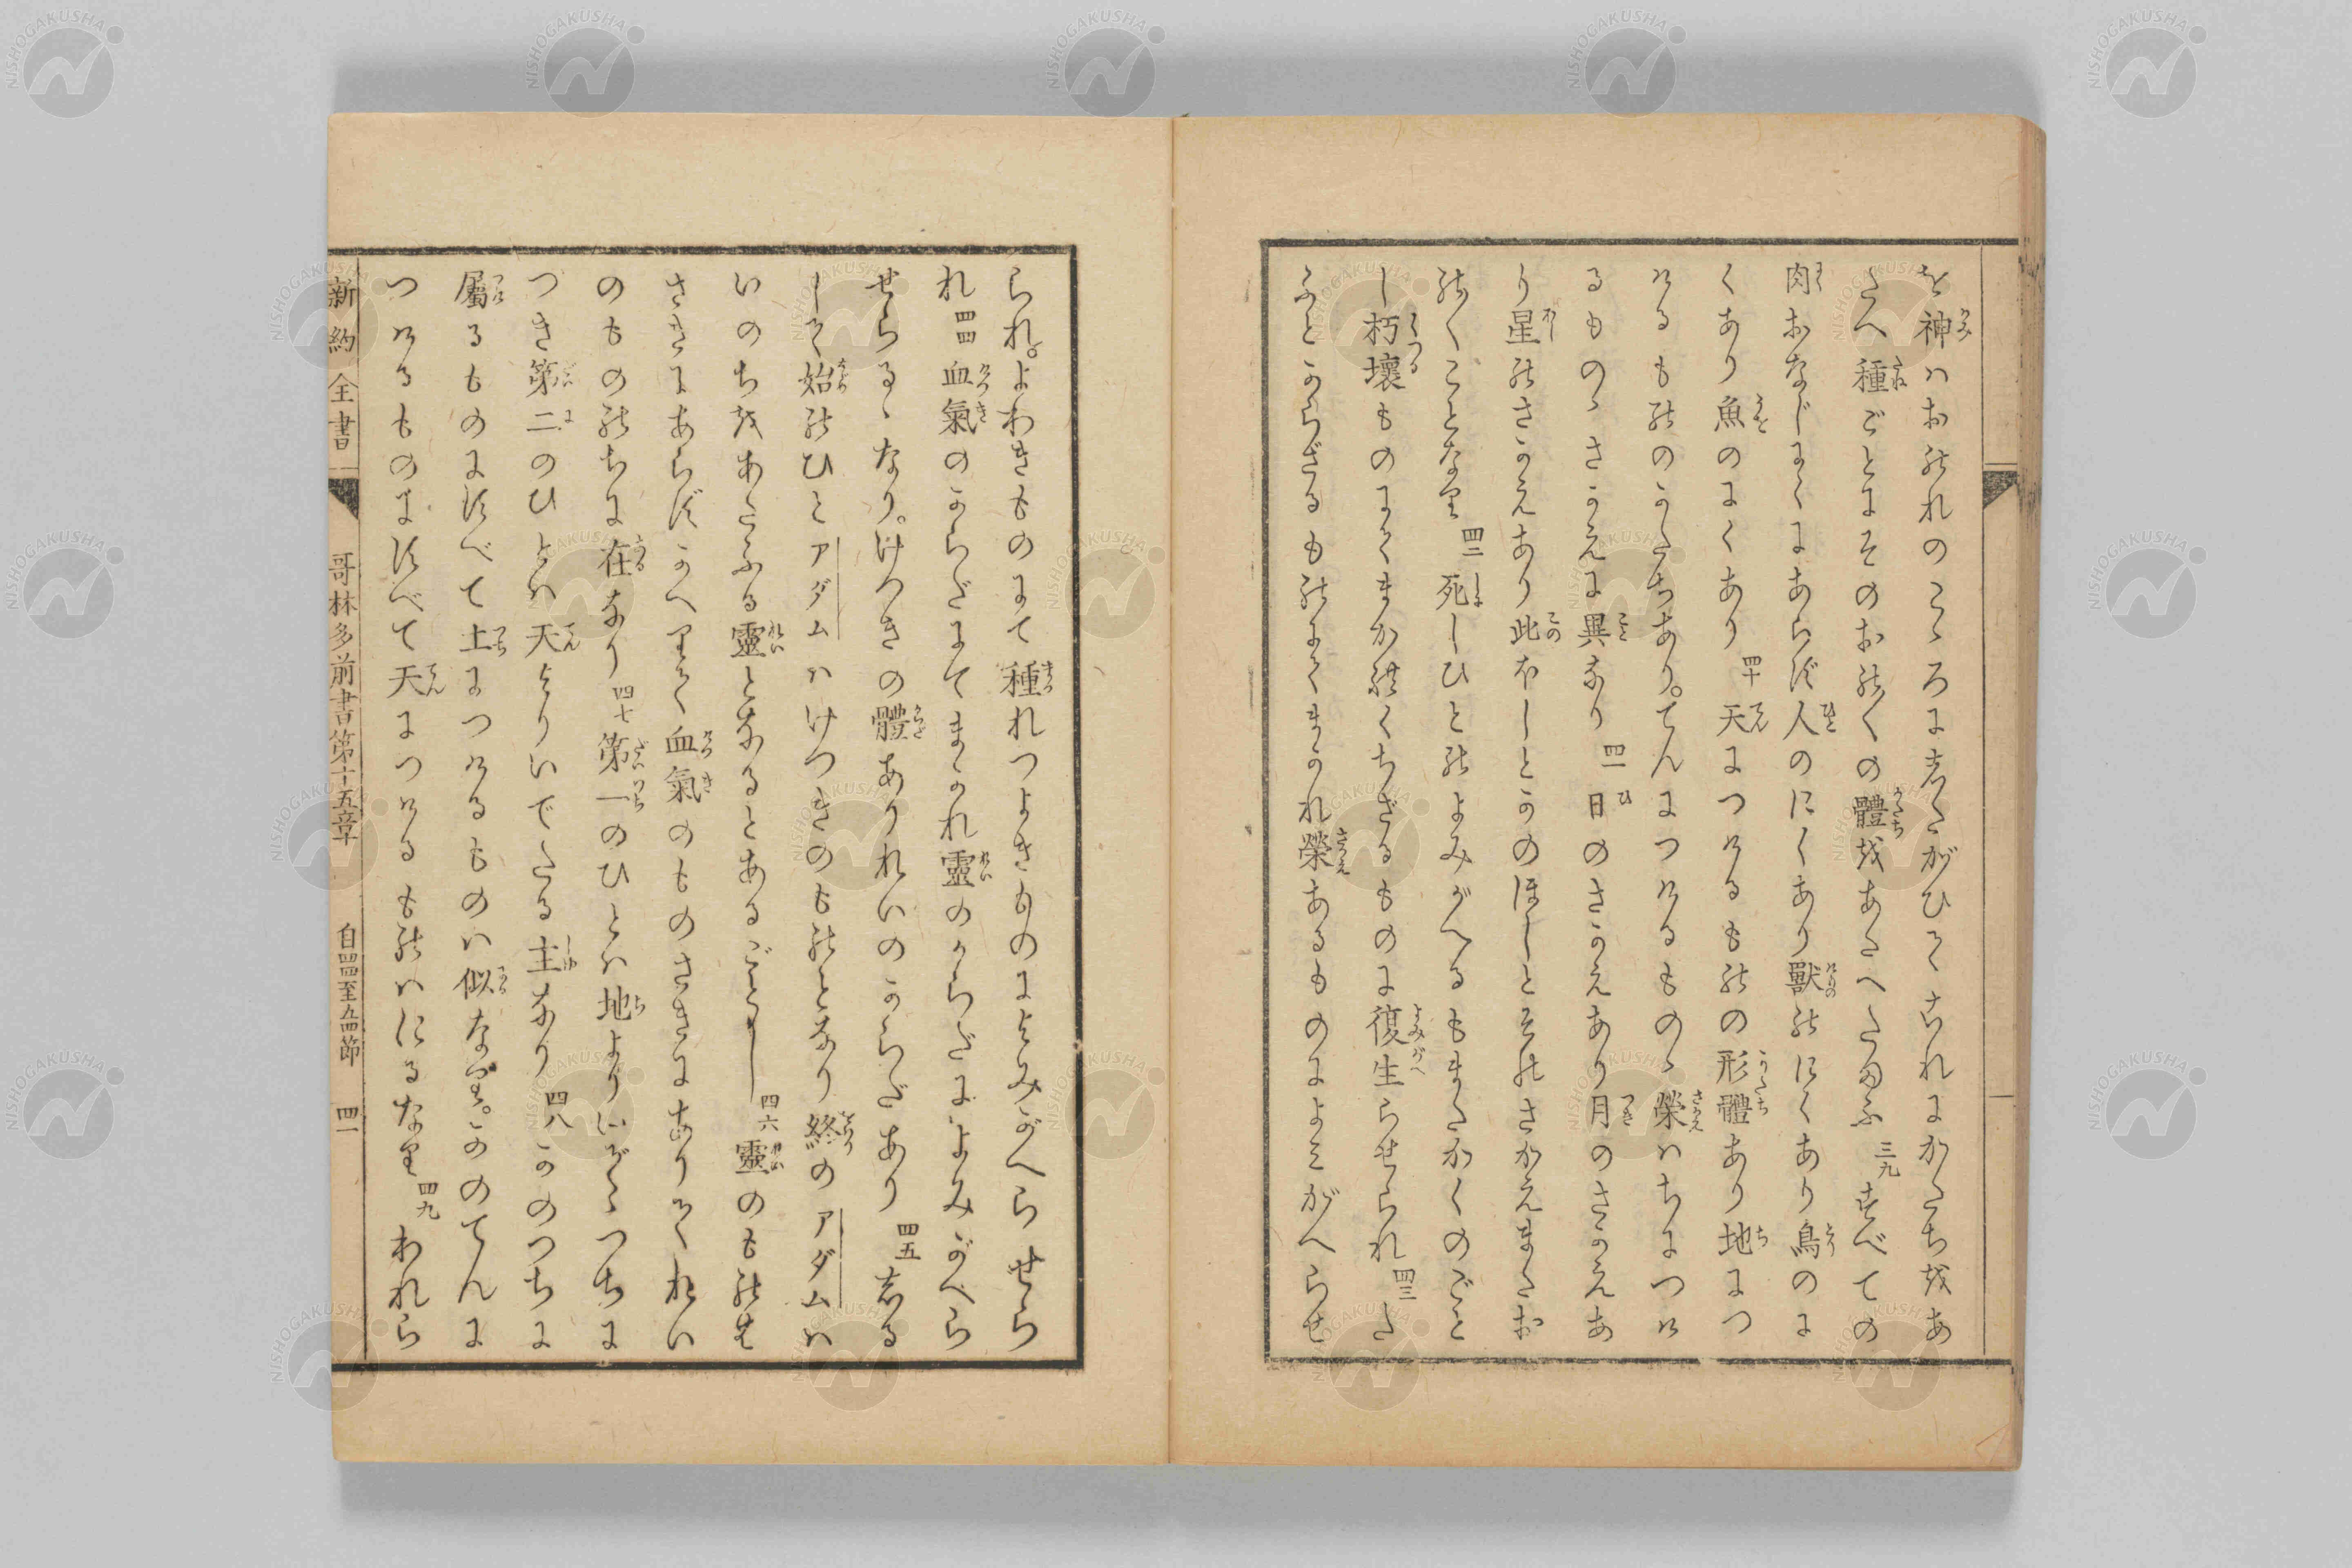 を神ハおのれのこゝろにしたがひてこれにかたちをあ
たへ種ごとにそのおのくの體をあたへたまふ三九すべての
肉おなじにくにあらず人のにくあり獸のにくあり鳥のに
くあり魚のにくあり四十天につけるものの形體あり地につ
けるもののかたちあり。てんにつけるものゝ榮ハちにつけ
るものゝさかえに異なり四一日のさかえあり月のさかえあ
り星のさかえあり此ほしとかのほしとそのさかえまたお
のくことなり四二死しひとのよみがへるもまたかくのごと
し朽壞ものにてまかれくちざるものに復生らせられ四三た
ふとからざるものにてまかれ榮あるものによみがへらせ
られ。よわきものにて種れつよきものによみがへらせら
れ四四血氣のからだにてまかれ靈のからだによみがへら
せらるゝなり。けつきの體ありれいのからだあり四五しる
して始のひとアダムハけつきのものとなり終のアダムハ
いのちをあたふる靈となるとあるごとし四六靈のものは
さきにあらずかへりて血氣のものさきにありてれい
のもののちに在なり四七第一のひとハ地よりいでゝつちに
つき第二のひとハ天よりいでたる主なり四八かのつちに
屬るものにすべて土につけるものハ似なり。かのてんに
つけるものにすべて天につけるものハにるなり四九われら
新約全書 哥林多前書第十五章 自四四至五四節 四一